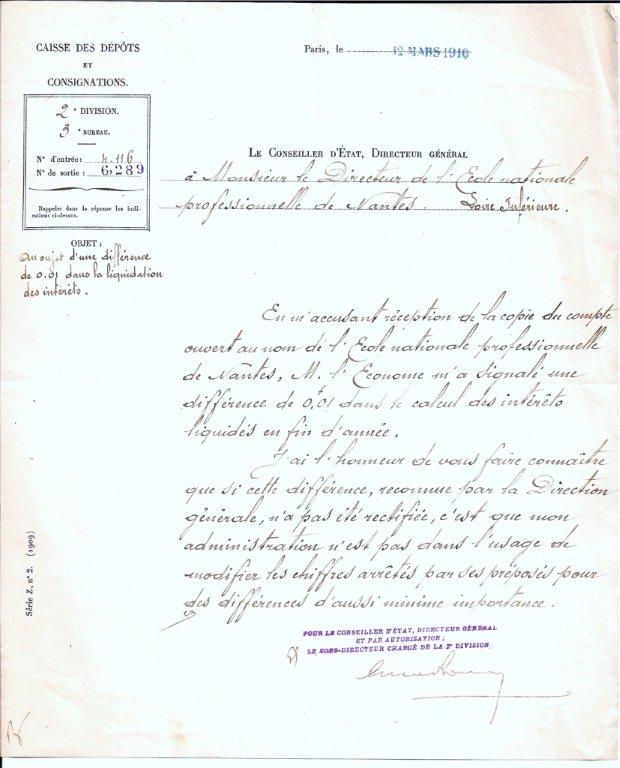 CAISSE DES DÉPÔTS
ET
CONSIGNATIONS.
2e DIVISION.
3e BUREAU.
N° d'entrée : 4.116
N° de sortie : 6,289
Rappeler dans la réponse les indi-
cations ci-dessus.
OBJET :
Au sujet d'une différence
de 0.01 dans la liquidation
des intérêts.
Paris, le 12 MARS 1910
LE CONSEILLER D'ÉTAT, DIRECTEUR GÉNÉRAL
à Monsieur le Directeur de l'Ecole nationale
professionnelle de Nantes Loire Inférieure.
En m'accusant réception de la copie du compte
ouvert au nom de l'Ecole nationale professionnelle
de Nantes, M. l'Econome m'a signalé une
différence de 0f,01 dans le calcul des intérêts
liquidés en fin d'année.
J'ai l'honneur de vous faire connaître
que si cette différence, reconnue par la Direction
générale, n'a pas été rectifiée, c'est que mon
administration n'est pas dans l'usage de
modifier les chiffres arrêtés par ses préposés pour
des différences d'aussi minime importance.
POUR LE CONSEILLER D'ÉTAT, DIRECTEUR GÉNÉRAL
ET PAR AUTORISATION ;
LE SOUS-DIRECTEUR CHARGÉ DE LA 2e DIVISION,
Série Z, n° 2. (1909)